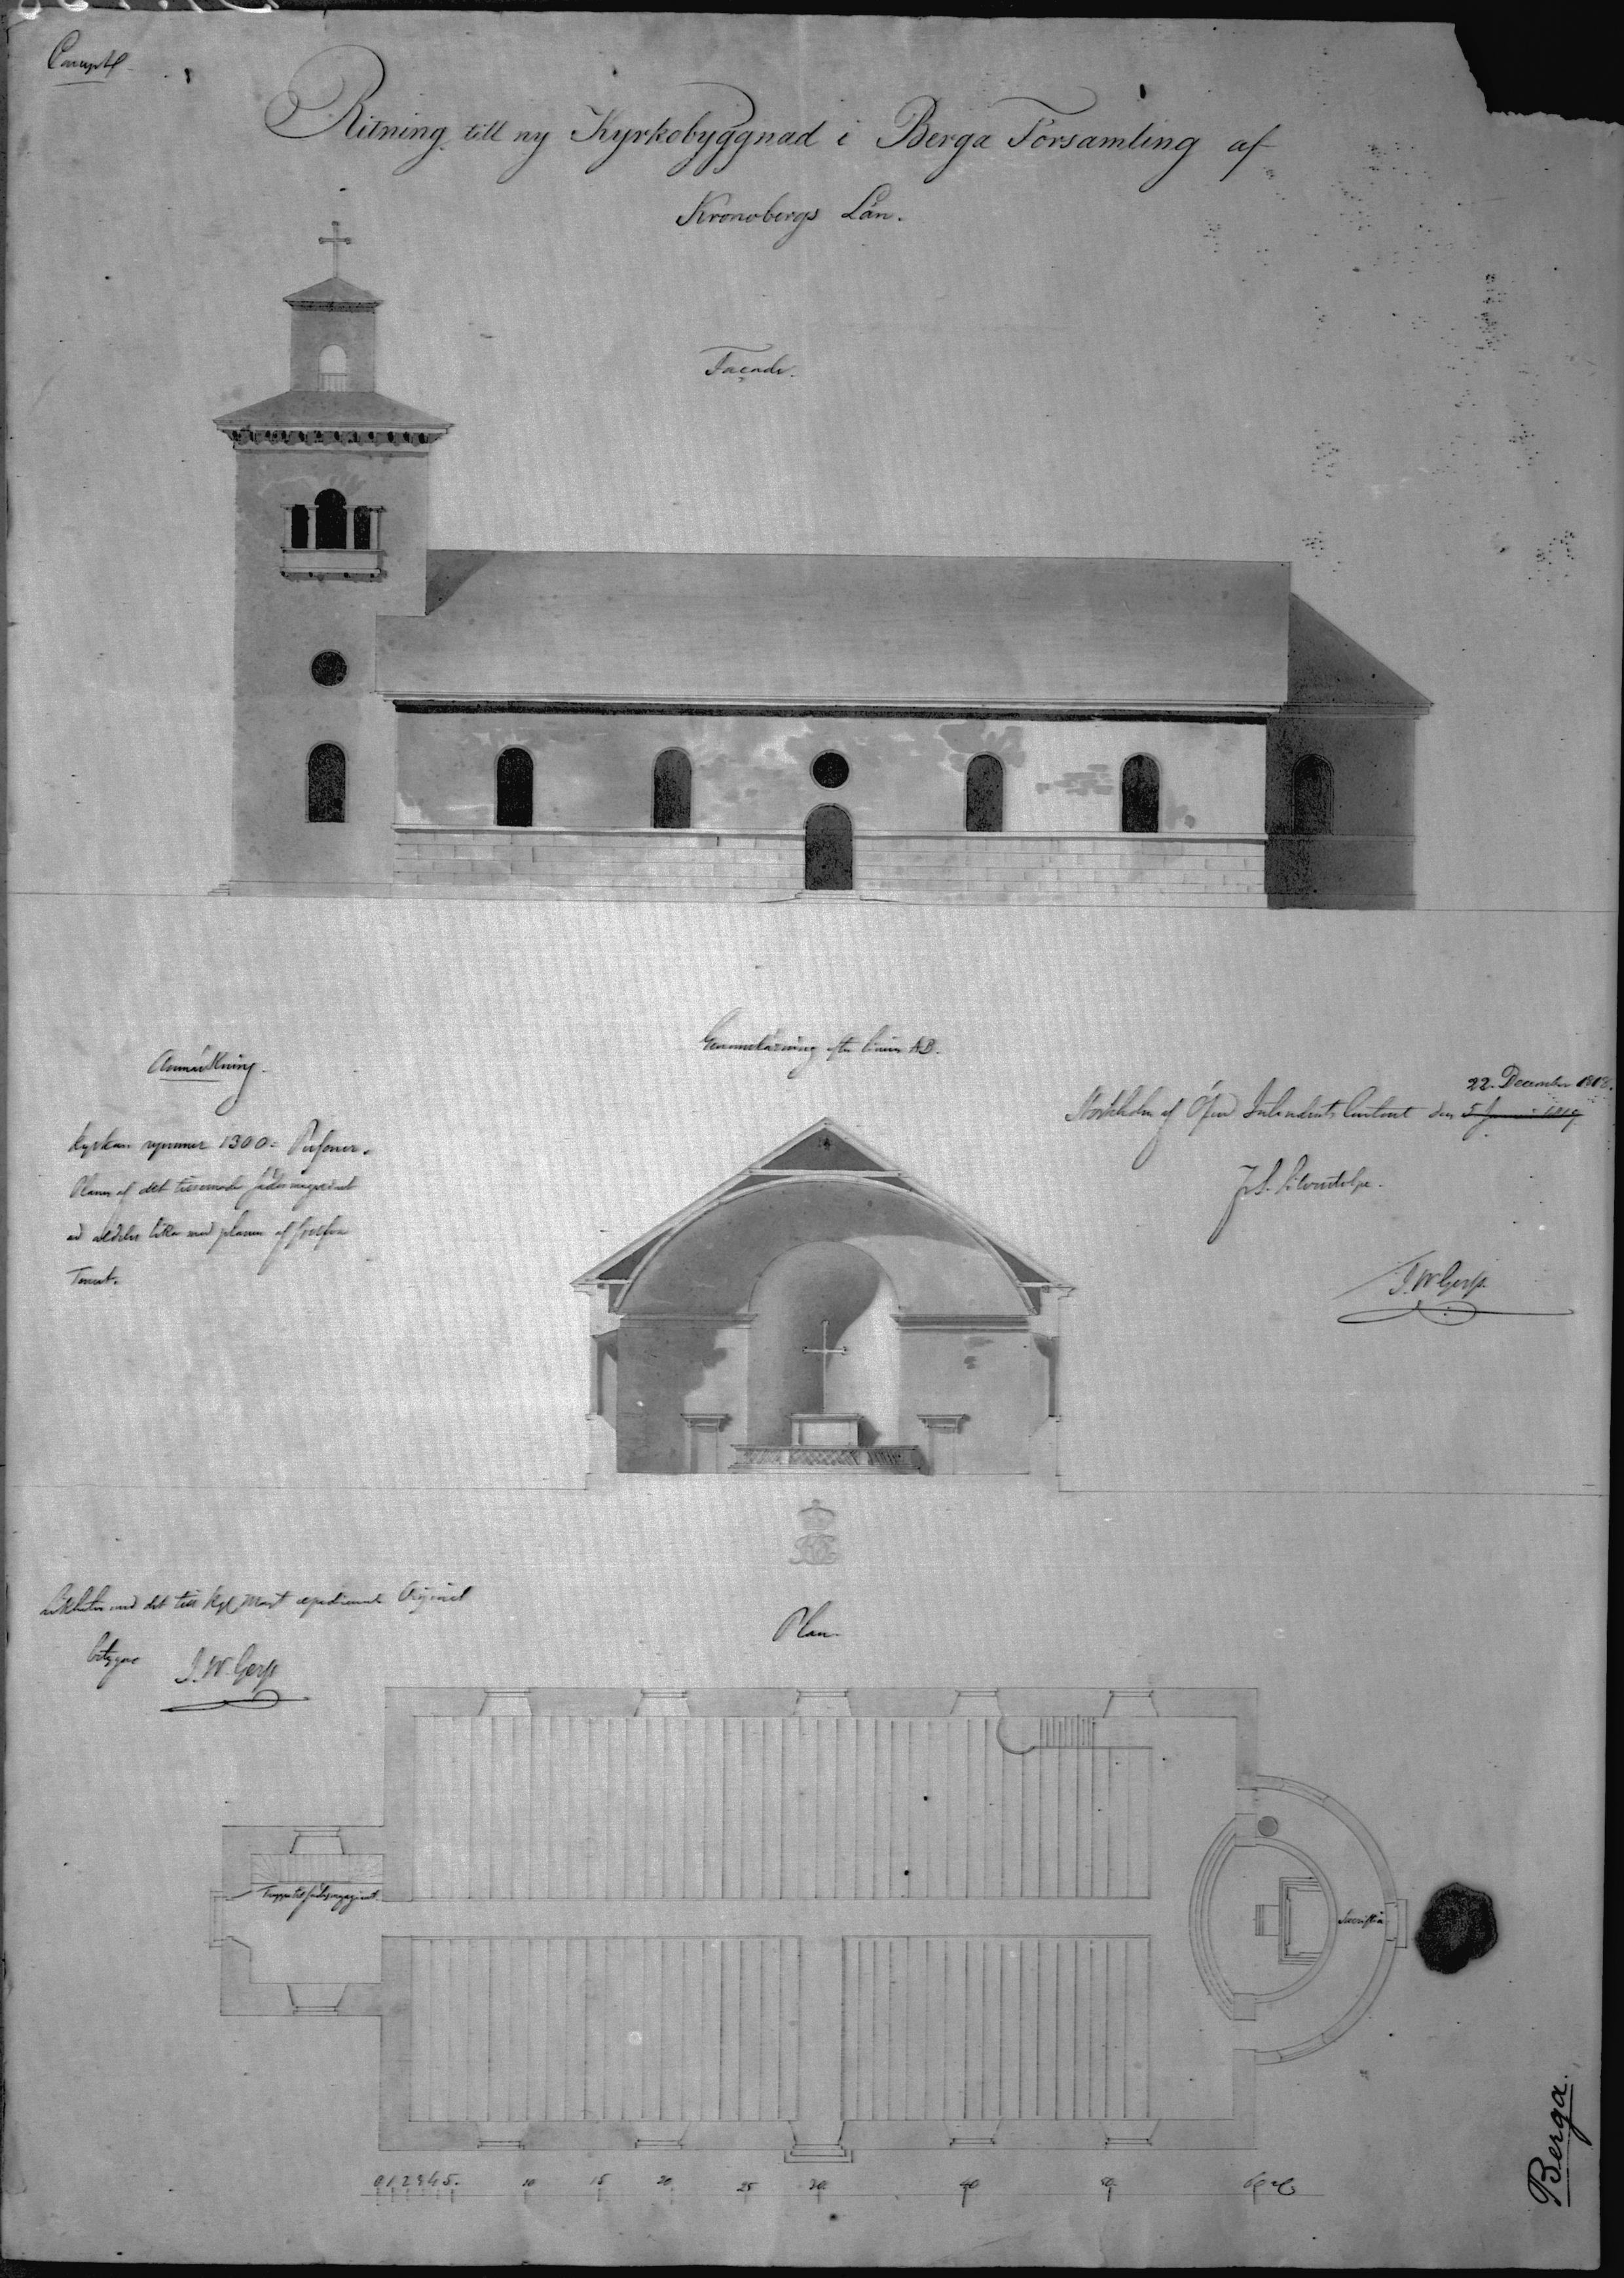 Ritning till ny Kyrkobyggnad i Berga Församling af
Kronobergs Län.
Façade.
Genomskärning efter linien AB.
Anmärkning.
Kyrkan rymmer 1300 Personer.
Planen af det
med planen af
Tornet.
22. December 1818.
Stockholm af Öfver Intendents Contoiret den 5 1819
J. W. Gerss.
Likheten med det till Kgl. Maj:t expedierade Original
betygar J. W. Gerss
Plan
Trappa till sädesmagazinet.
Sacristia
0 1 2 3 4 5. 10 15 20 25 30 40 50 60 al
Berga.